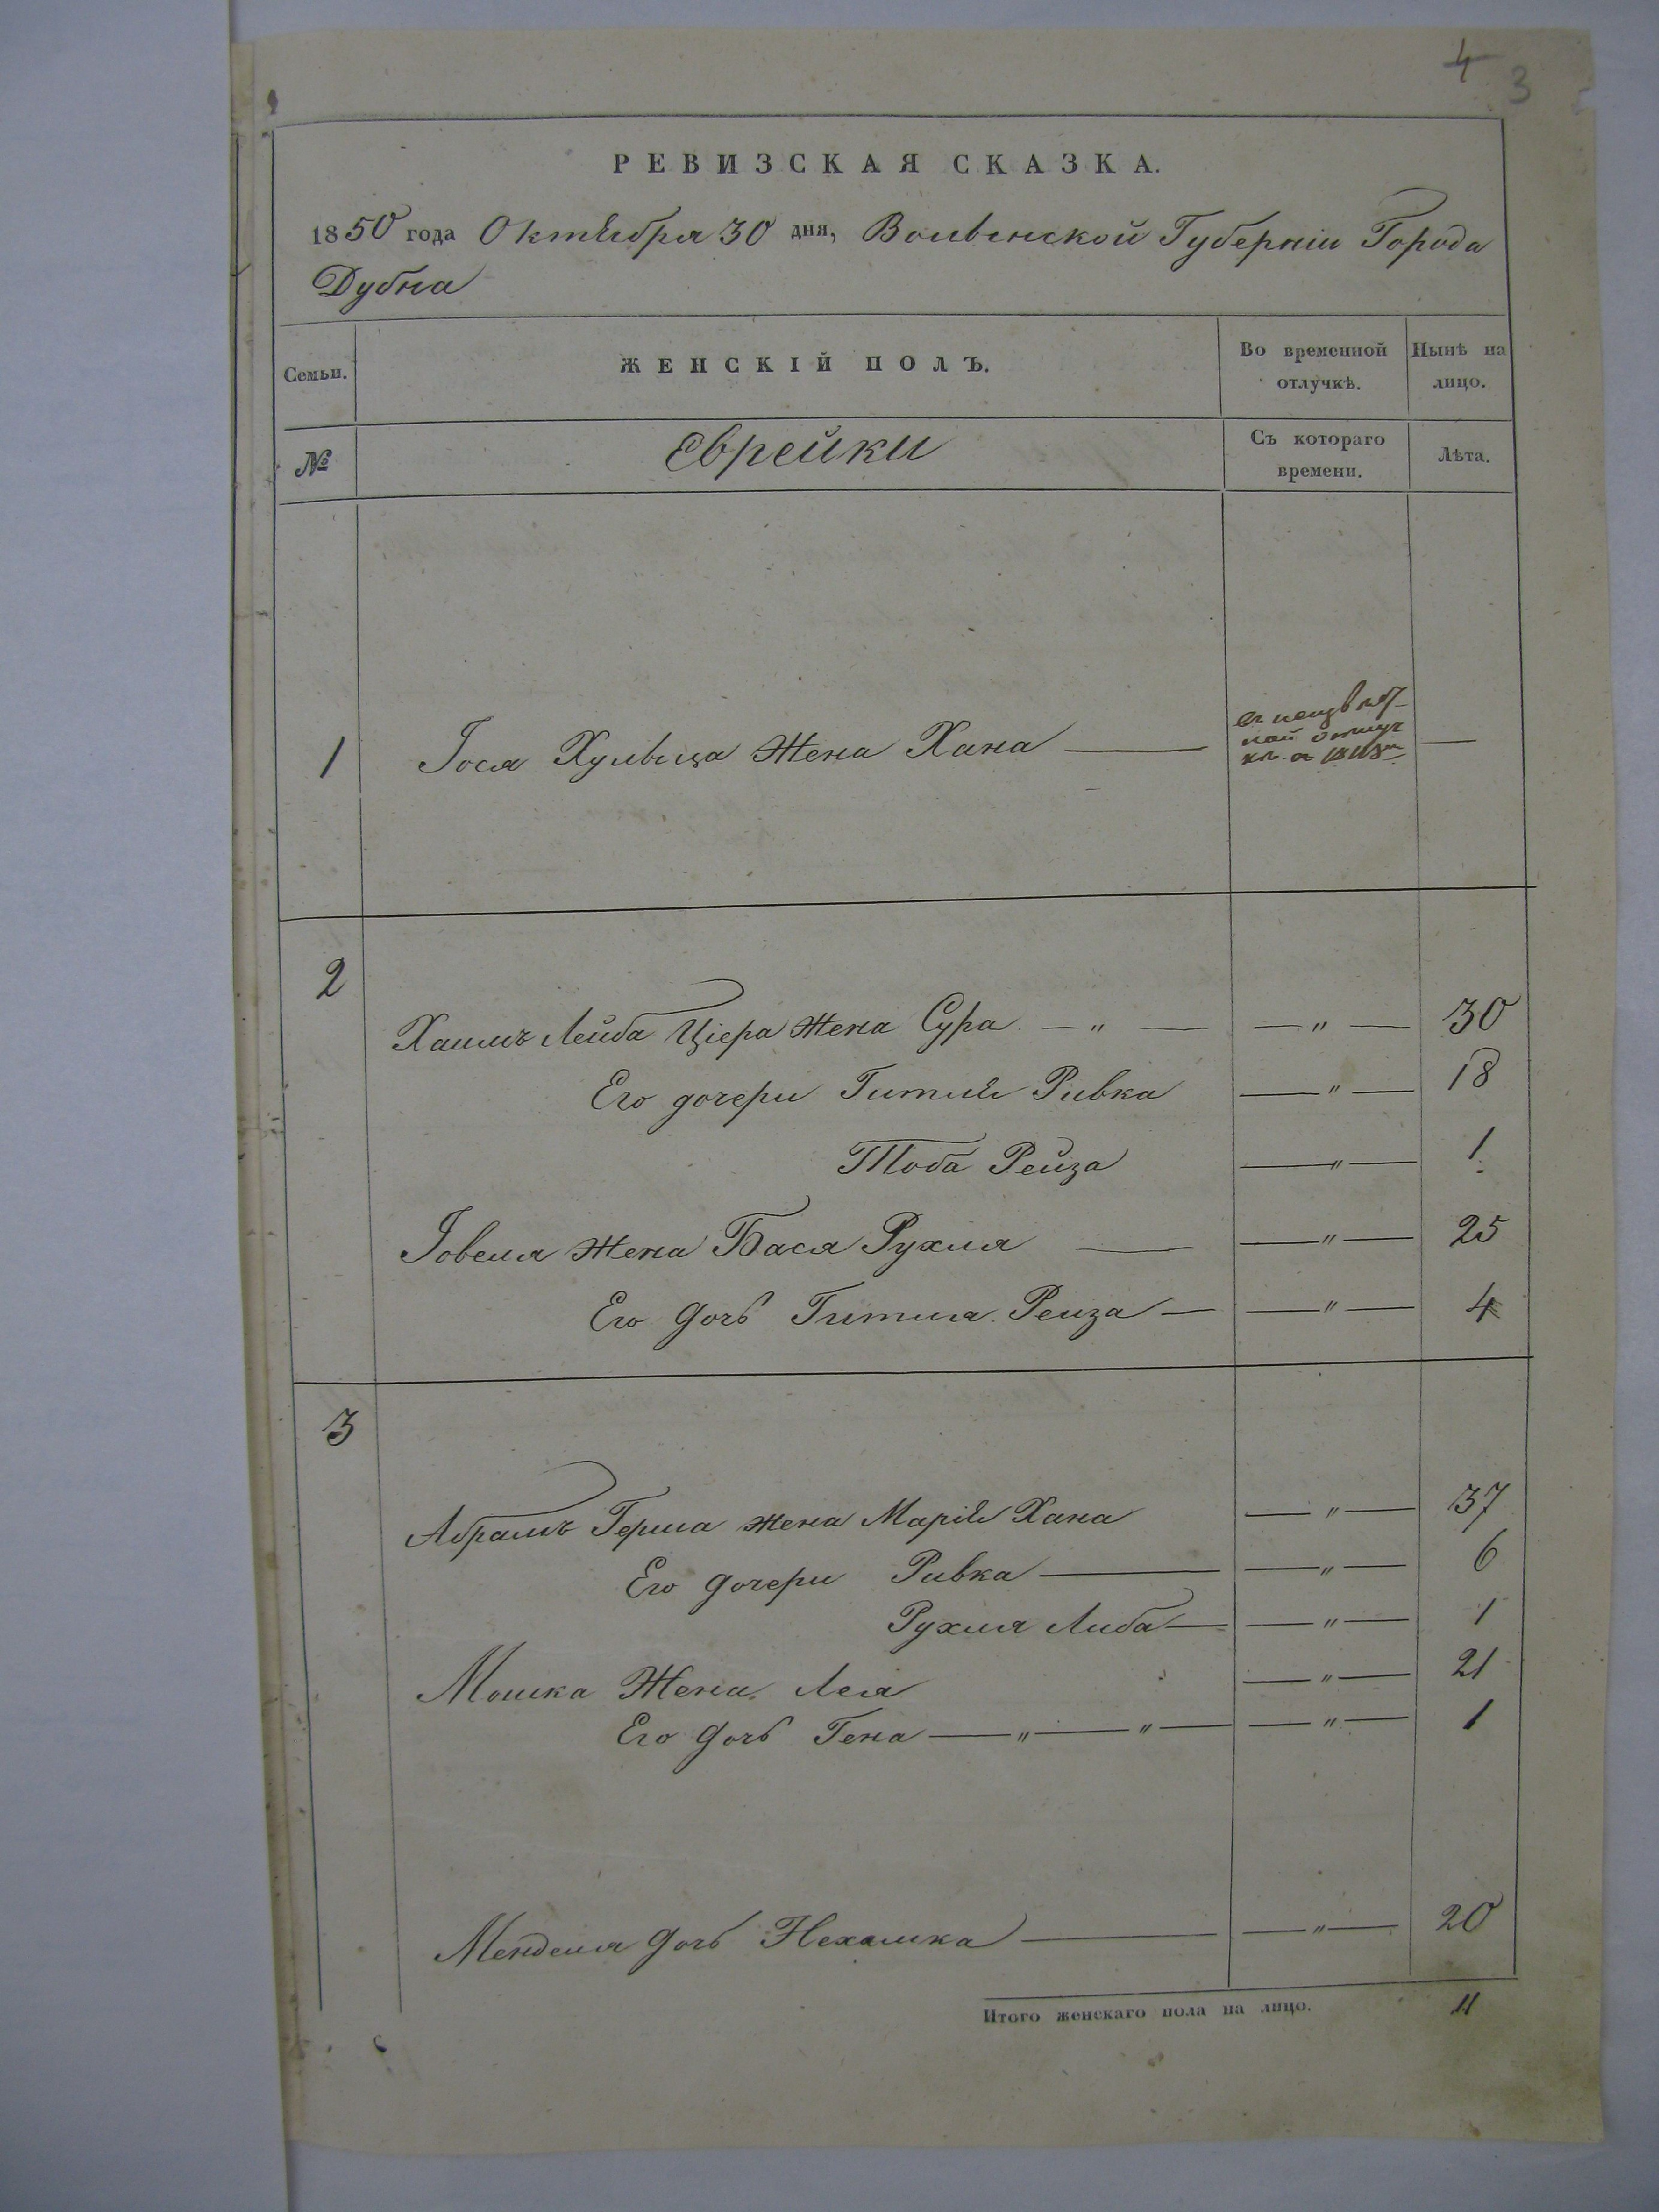 4 3
РЕВИЗСКАЯ СКАЗКА.
1850 года Октября 30 дня, Волынской Губерніи Города
Дубна
Семьи. ЖЕНСКІЙ ПОЛЪ. Во временной отлучкѣ. Нынѣ на лицо.
№ Еврейки Съ котораго времени. Лѣта.
1 Іося Хульвица Жена Хана — отлуч —
2
Хаимъ Лейба Ціера Жена Сура — " — — " — 30
Его дочери Гитля Ривка — " — 18
Тоба Рейза — " — 1
Іовеля Жена Бася Рухля — — " — 25
Его дочь Гитля Реиза — — " — 4
3
Абрамъ Герша жена Марія Хана — " — 37
Его дочери Ривка — — " — 6
Рухля Либа — — " — 1
Мошка Жена Лея — " — 21
Его дочь Гена — " — " — — " — 1
Менделя дочь Нехамка — — " — 20
Итого женскаго пола на лицо. 11